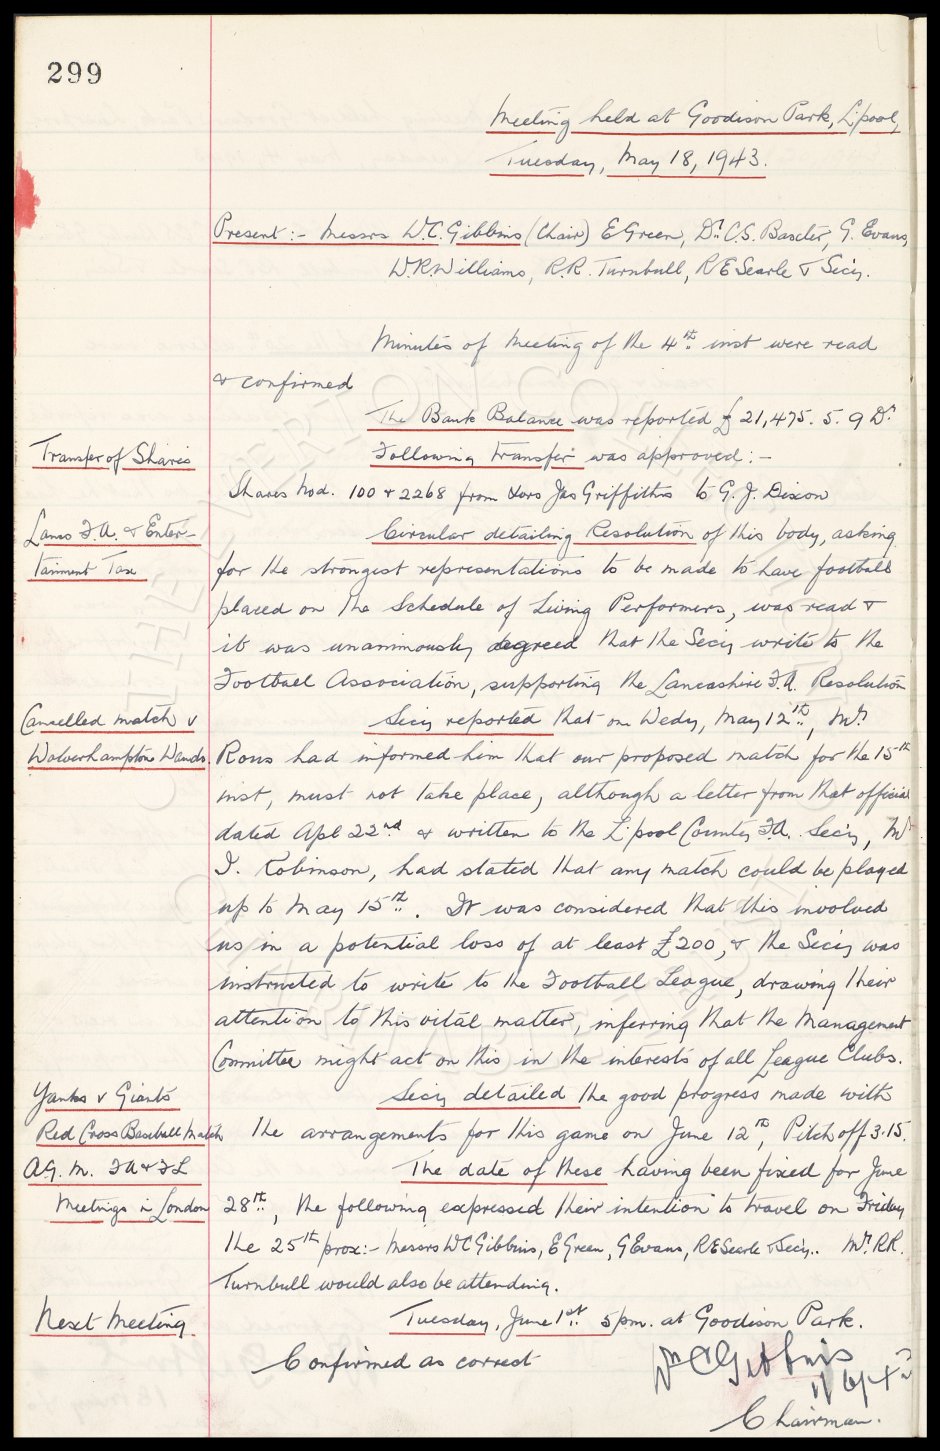 299
Meeting held at Goodison Park, L'pool,
Tuesday, May 18, 1943.
Present:- Messrs W.C. Gibbins (Chair) E Green, Dr. C.S. Baxter, G. Evans,
W.R. Williams, R.R. Turnbull, R E Searle & Secy.
Minutes of Meeting of the 4th inst were read
& confirmed
The Bank Balance was reported £21,475. 5. 9 Dr.
Transfer of Shares
Following Transfer was approved:-
Shares Nod. 100 & 2268 from Exors Jas Griffiths to G. J. Dixon
Lancs F.A. & Enter-
tainment Tax
Circular detailing Resolution of this body, asking
for the strongest representations to be made to have football
placed on the Schedule of Living Performers, was read &
it was unanimously agreed that the Secy write to the
Football Association, supporting the Lancashire F.A. Resolution
Cancelled match v
Wolverhampton Wands.
Secy reported that on Wedy, May 12th, Mr.
Rous had informed him that our proposed match for the 15th
inst, must not take place, although a letter from that official
dated Apl 22nd & written to the L'pool County F.A. Secy, Mr
J. Robinson, had stated that any match could be played
up to May 15th. It was considered that this involved
us in a potential loss of at least £200, & the Secy was
instructed to write to the Football League, drawing their
attention to this vital matter, inferring that the Management
Committee might act on this in the interests of all League Clubs.
Yanks v Giants
Red Cross Baseball Match
Secy detailed the good progress made with
the arrangements for this game on June 12th, Pitch off 3.15.
A.G.M. FA & FL
Meetings in London
The date of these having been fixed for June
28th, the following expressed their intention to travel on Friday
the 25th prox:- Messrs WC Gibbins, E Green, G Evans, RE Searle & Secy.. Mr. RR.
Turnbull would also be attending.
Next Meeting.
Tuesday, June 1st 5pm. at Goodison Park.
Confirmed as correct
Wm C Gibbins
1/6/43
Chairman.